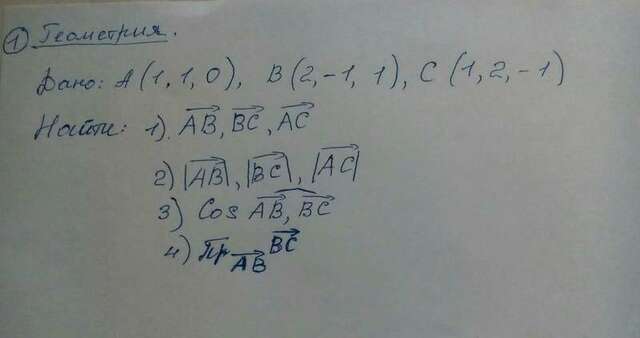 1 Геометрия.
Дано: A (1, 1, 0), B (2, -1, 1), C (1, 2, -1)
Найти: 1). AB, BC, AC
2) |AB|, |BC|, |AC|
3) Cos AB, BC
4) Пр AB BC